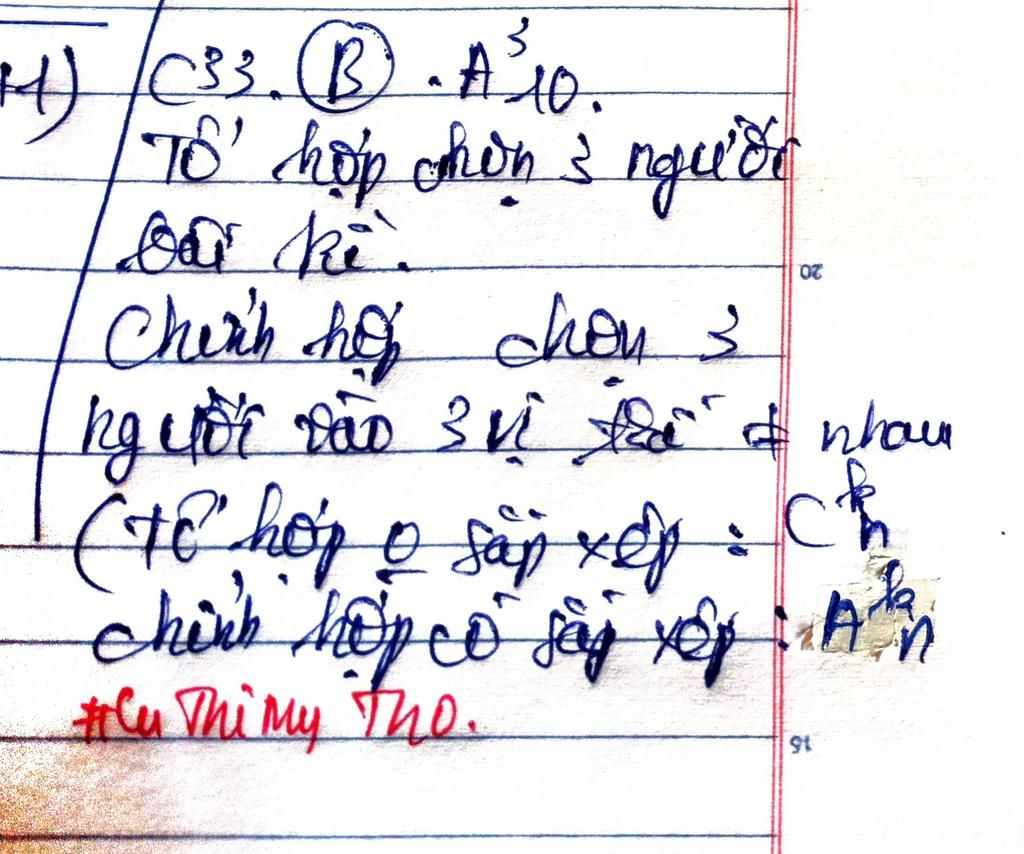 +1)
C33. B. A³10.
Tổ hợp chọn 3 người
bất kì.
Chỉnh hợp chọn 3
người vào 3 vị trí ≠ nhau
(Tổ hợp o sắp xếp : Cᵏn
chỉnh hợp có sắp xếp : Aᵏn
#Cu Thi My Tho.
20
18